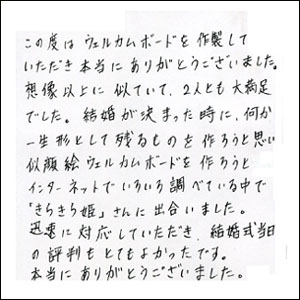 この度は ウェルカムボードを 作製して
いただき 本当に ありがとうございました。
想像以上に 似ていて、2人とも 大満足
でした。 結婚が 決まった時に、何か
一生形として 残るものを 作ろうと思い
似顔絵ウェルカムボードを 作ろうと
インターネットで いろいろ 調べている中で
「きらきら姫」さんに 出合いました。
迅速に 対応していただき、結婚式当日
の 評判も とてもよかったです。
本当に ありがとうございました。